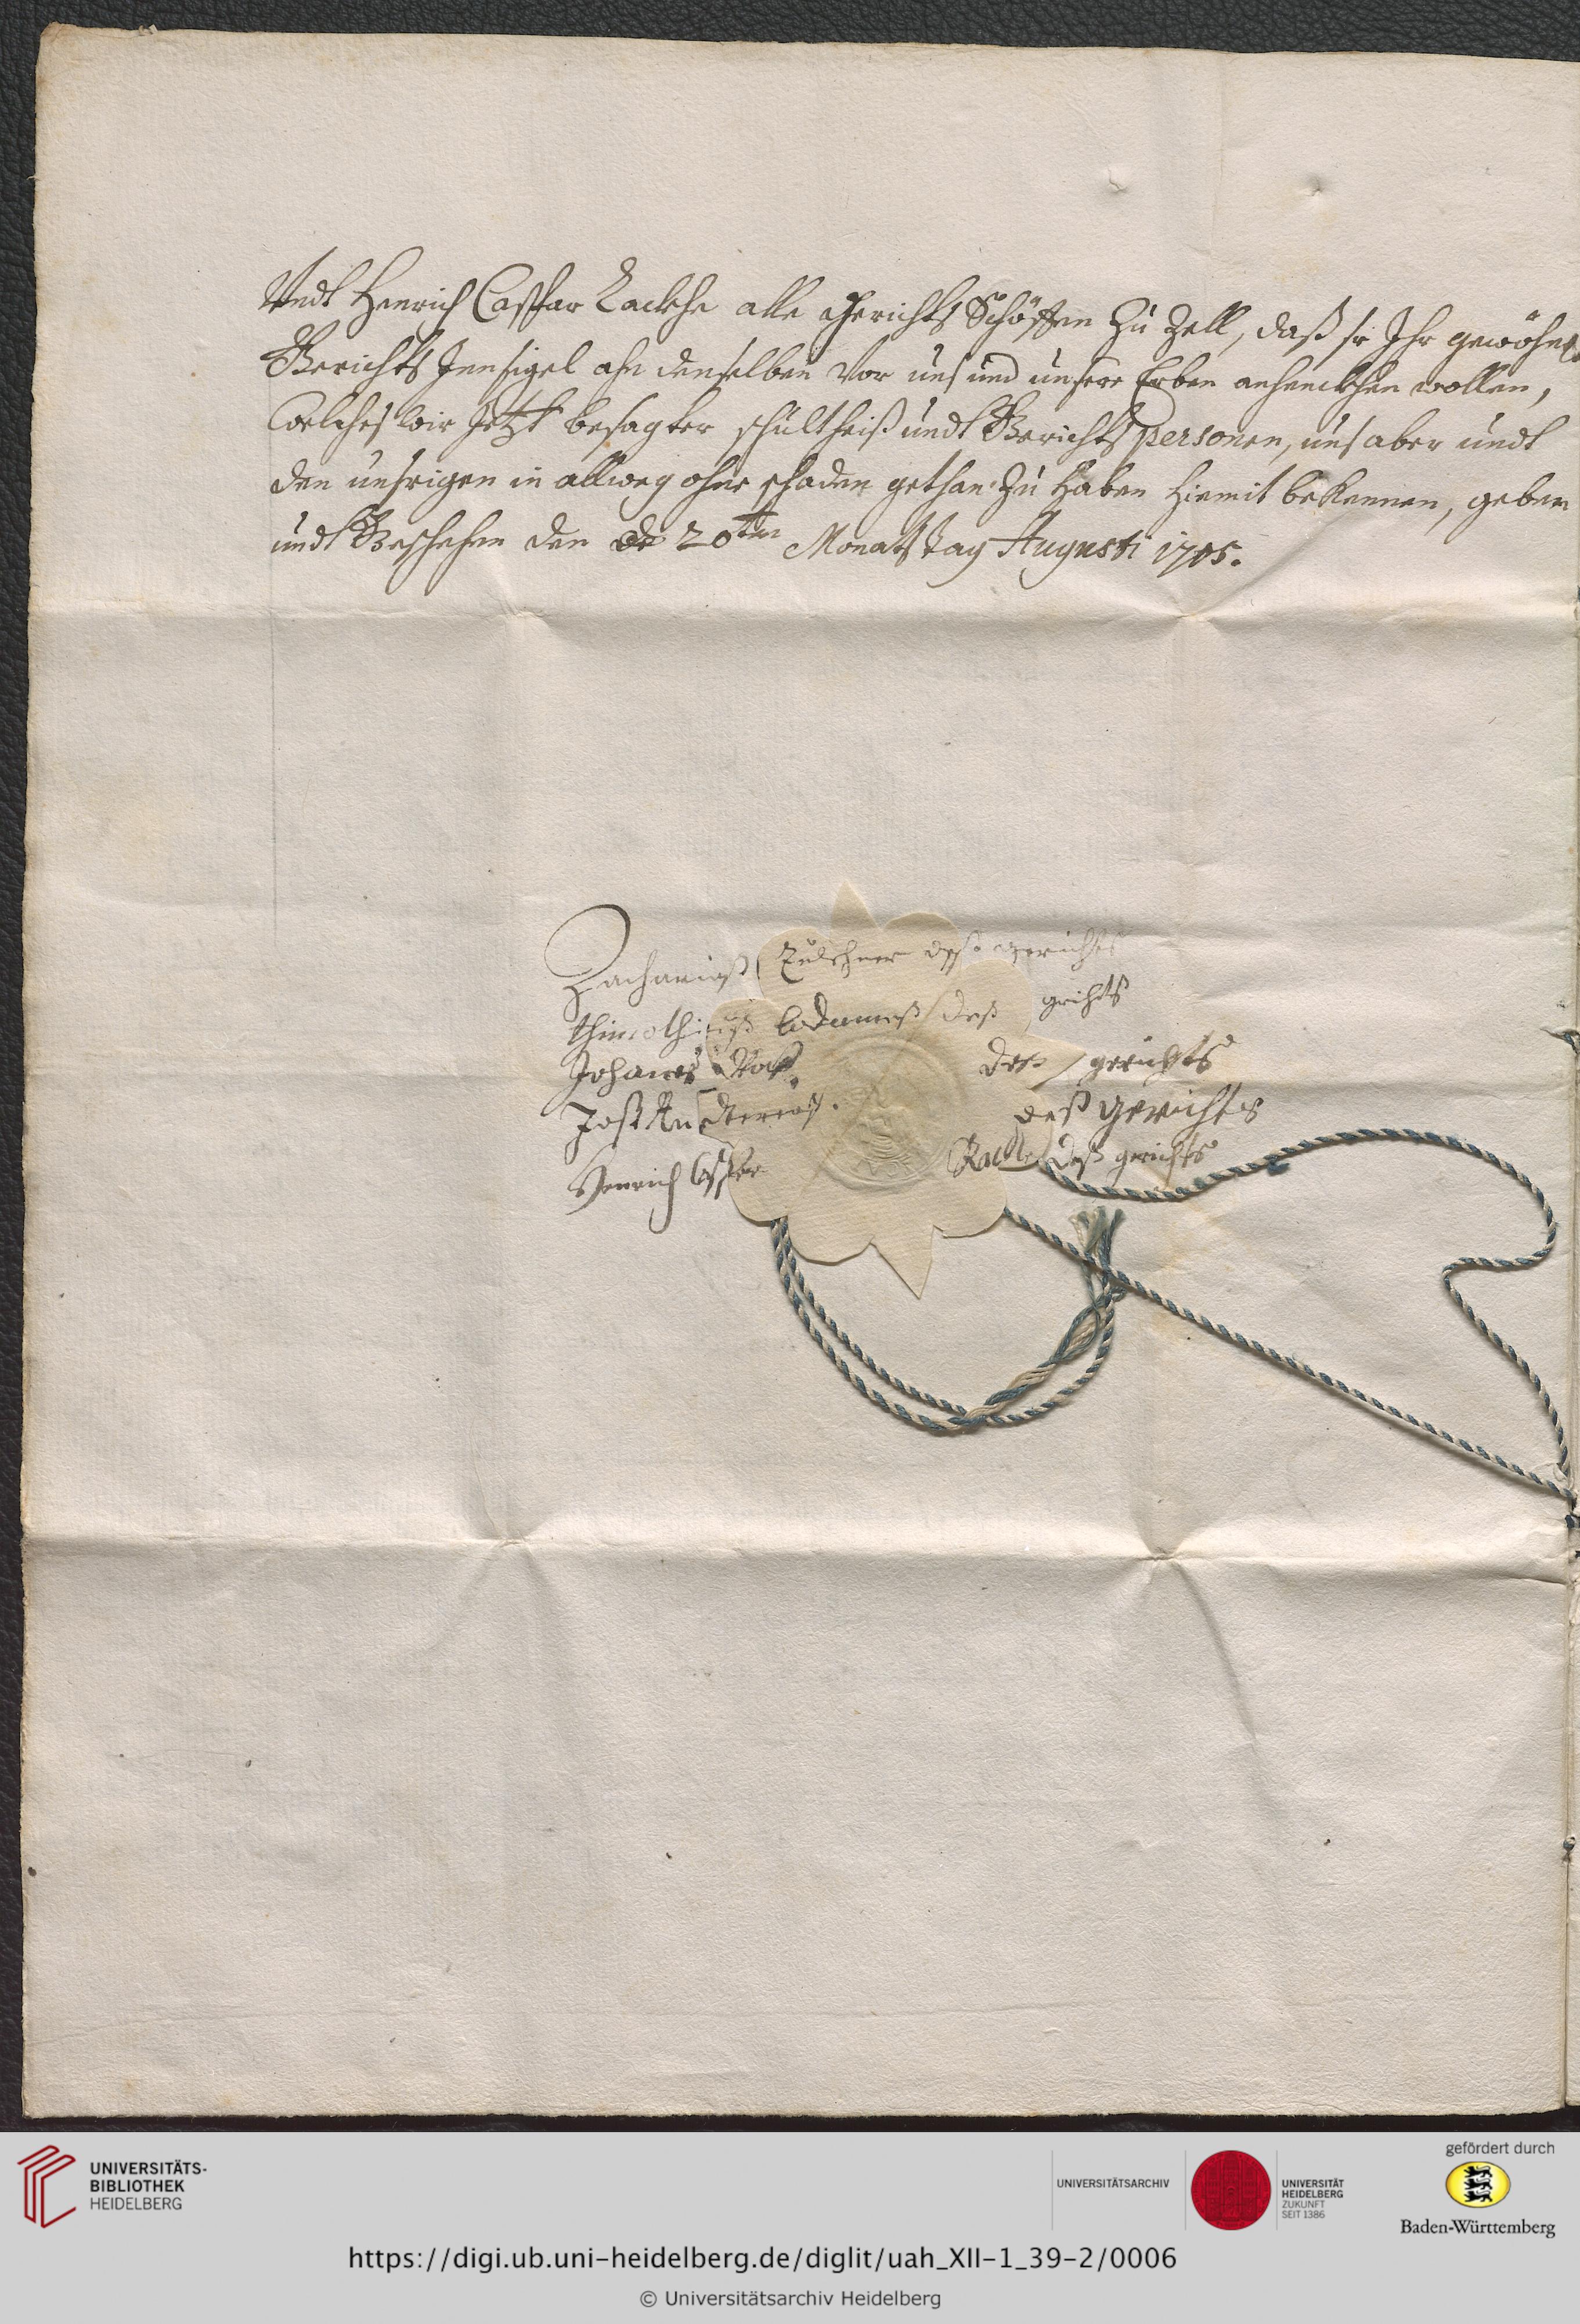 Undt Henrich Caspar Rackhe alle Gerichts Schöffen zu Zell, daß sie Ihr gewöhnl.
Gerichts Innsigel ahn denselben vor uns und unsere Erben anhenckhen wollen,
Welches wir Jetzt besagter schultheiß undt Gerichts personen, uns aber undt
den unsrigen in allweg ohne schaden gethan zu haben hiemit bekennen, geben
undt Geschehen den 20ten Monats Tag Augusti 1705.
Zacharias deß gerichts
thimothius deß grichts
Johanes deß gerichts
Jost Andereas deß gerichts
Henrich Casper Rackhe deß gerichts
UNIVERSITÄTS-
BIBLIOTHEK
HEIDELBERG
UNIVERSITÄTSARCHIV
UNIVERSITÄT
HEIDELBERG
ZUKUNFT
SEIT 1386
gefördert durch
Baden-Württemberg
https://digi.ub.uni-heidelberg.de/diglit/uah_XII-1_39-2/0006
© Universitätsarchiv Heidelberg